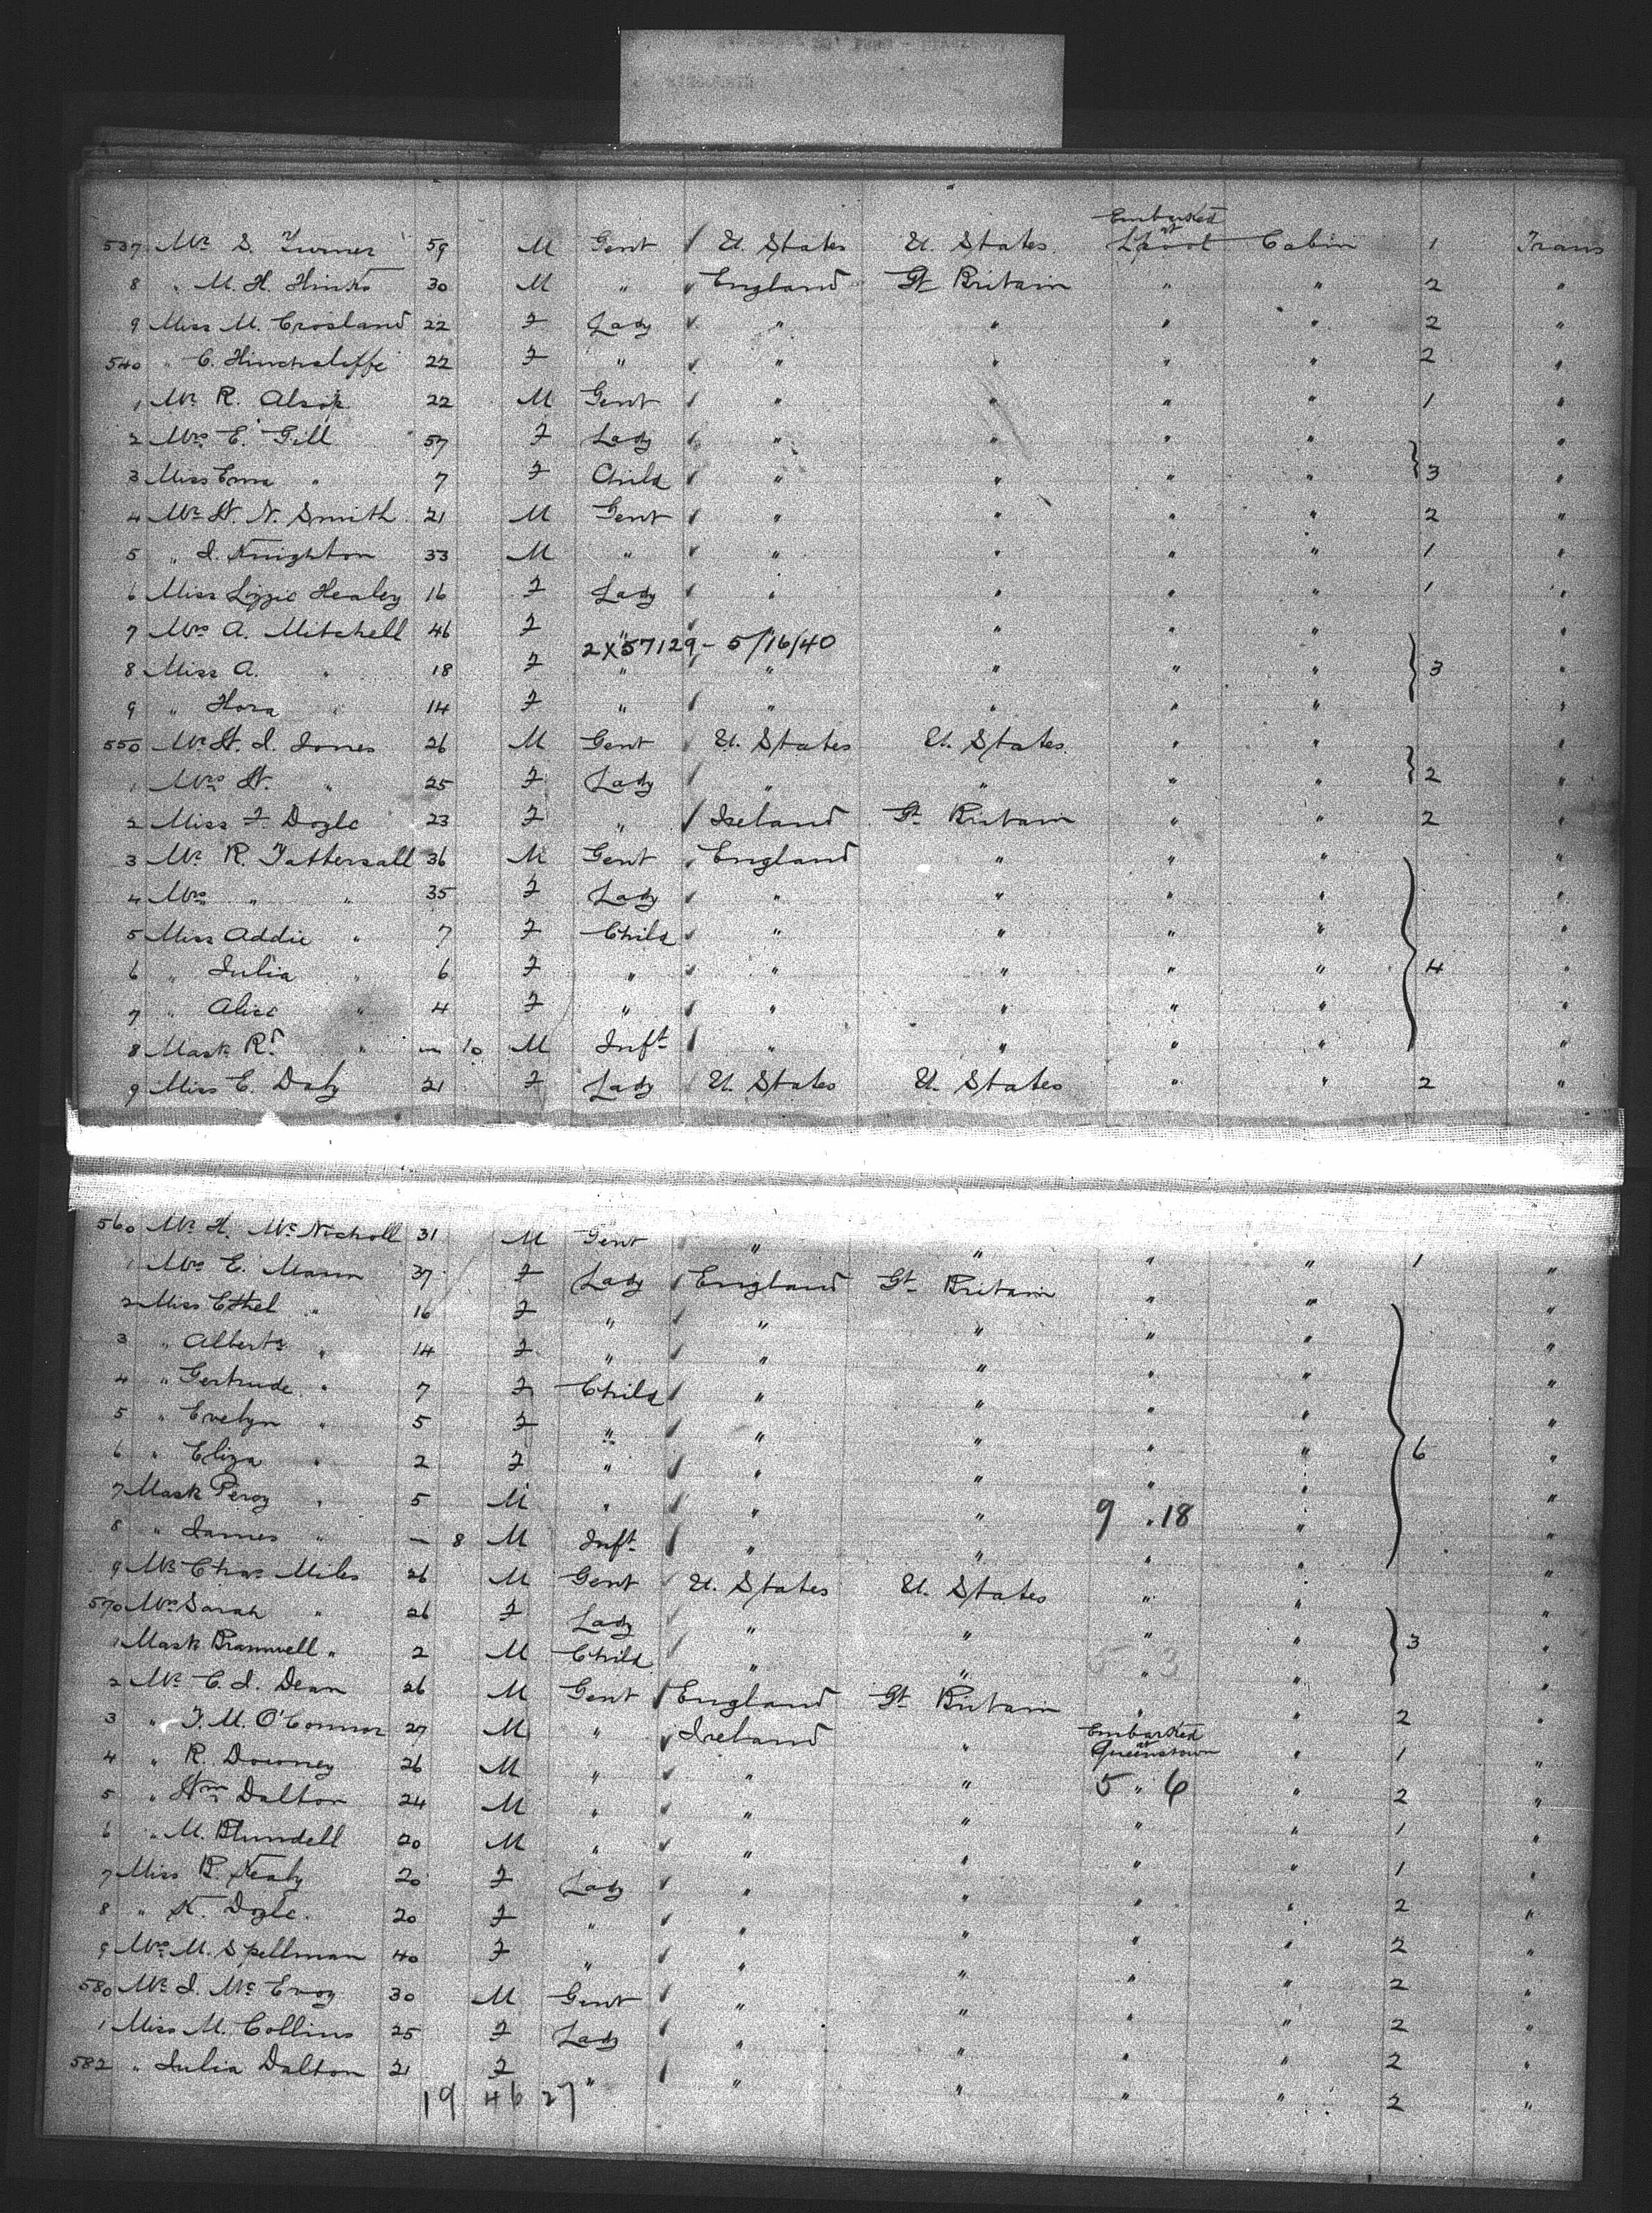 Embarked
at
537 Mr. S. Turner 59 M Gent / U. States U. States L'pool Cabin 1 Trans
8 " M. H. Hinks 30 M " / England Gt. Britain " " 2 "
9 Miss M. Crosland 22 F Lady / " " " " 2 "
540 " C. Hinchcliffe 22 F " / " " " " 2 "
1 Mr. R. Alsop 22 M Gent / " " " " 1 "
2 Mrs. E. Gill 57 F Lady / " " " " "
3 Miss Ema " 7 F Child / " " " " } 3 "
4 Mr. W. N. Smith 21 M Gent / " " " " 2 "
5 " J. Knighton 33 M " / " " " " 1 "
6 Miss Lizzie Healey 16 F Lady / " " " " 1 "
7 Mrs. A. Mitchell 46 F " / " " " " "
2X57129 - 5/16/40
8 Miss A. " 18 F " " " " " } 3 "
9 " Flora " 14 F " / " " " " "
550 Mr. W. J. Jones 26 M Gent / U. States U. States " " "
1 Mrs. W. " 25 F Lady / " " " " } 2 "
2 Miss F. Doyle 23 F " / Ireland Gt. Britain " " 2 "
3 Mr. R. Tattersall 36 M Gent / England " " " "
4 Mrs. " " 35 F Lady / " " " " "
5 Miss Addie " 7 F Child / " " " " "
6 " Julia " 6 F " / " " " " } 4 "
7 " Alice " 4 F " / " " " " "
8 Mast. Rd. " — 10 M Inft. / " " " " "
9 Miss E. Daly 21 F Lady / U. States U. States " " 2 "
560 Mr. H. McNicholl 31 M Gent / " " " " 1 "
1 Mrs. E. Mann 37 F Lady / England Gt. Britain " " "
2 Miss Ethel " 16 F " / " " " " "
3 " Alberta " 14 F " / " " " " "
4 " Gertrude " 7 F Child / " " " " "
5 " Evelyn " 5 F " / " " " " } 6 "
6 " Eliza " 2 F " / " " " " "
7 Mast. Percy " 5 M " / " " 9 " 18 " "
8 " James " — 8 M Inft. / " " " " "
9 Mr. Chas. Miles 26 M Gent / U. States U. States " " "
570 Mrs. Sarah " 26 F Lady / " " " " } 3 "
1 Mast. Bramwell " 2 M Child / " " " " "
2 Mr. C. J. Dean 26 M Gent / England Gt. Britain " " 2 "
Embarked
at
3 " T. M. O'Connor 27 M " / Ireland " Queenstown " 1 "
4 " R. Downey 26 M " / " " 5 " 6 " 2 "
5 " Wm. Dalton 24 M " / " " " " 1 "
6 " M. Blundell 20 M " / " " " " 1 "
7 Miss B. Kealy 20 F Lady / " " " " 2 "
8 " K. Doyle. 20 F " / " " " " 2 "
9 Mrs. M. Spellman 40 F " / " " " " 2 "
580 Mr. J. McEvoy 30 M Gent / " " " " 2 "
1 Miss M. Collins 25 F Lady / " " " " 2 "
582 " Julia Dalton 21 F " / " " " " 2 "
19 46 27